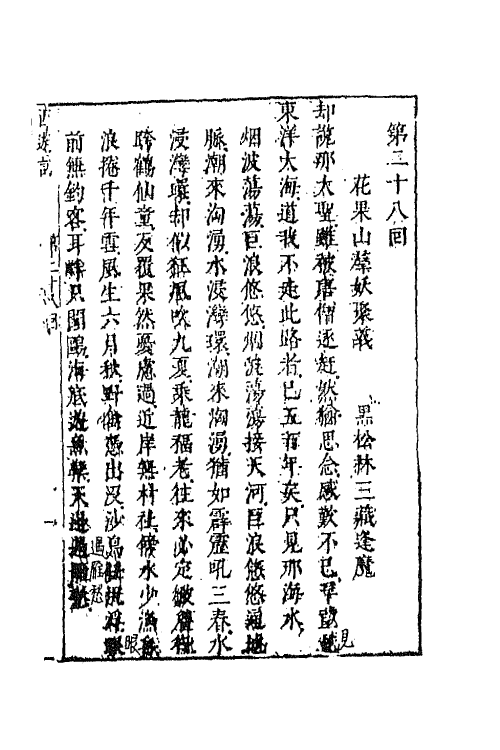 第二十八回
花果山羣妖聚義 黑松林三藏逢魔
却說那大聖雖被唐僧逐赶然猶思念感歎不已早望見
東洋大海道我不走此路者已五百年矣只見那海水
烟波蕩蕩巨浪悠悠烟波蕩蕩接天河巨浪悠悠通地
脉潮來洶湧水浸灣環潮來洶湧猶如霹靂吼三春水
浸灣環却似狂風吹九夏乘龍福老往來必定皺眉行
跨鶴仙童反覆果然憂慮過近岸無村社傍水少漁舟
浪捲千年雪風生六月秋野禽憑出没沙鳥任沉浮眼
前無釣客耳畔只聞鷗海底遊魚樂天邊過雁愁
過雁愁
西遊記
第二十八回
一